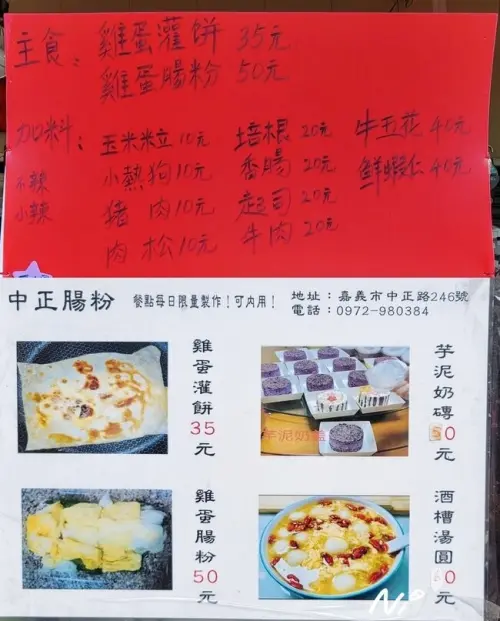 主食：雞蛋灌餅 35元
雞蛋腸粉 50元
加料：玉米粒 10元 培根 20元 牛五花 40元
不辣 小熱狗 10元 香腸 20元 鮮蝦仁 40元
小辣 豬肉 10元 起司 20元
肉松 10元 牛肉 20元
中正腸粉 餐點每日限量製作！可內用！
地址：嘉義市中正路246號
電話：0972-980384
雞蛋灌餅35元
芋泥奶磚50元
芋泥奶盒
雞蛋腸粉50元
酒糟湯圓60元